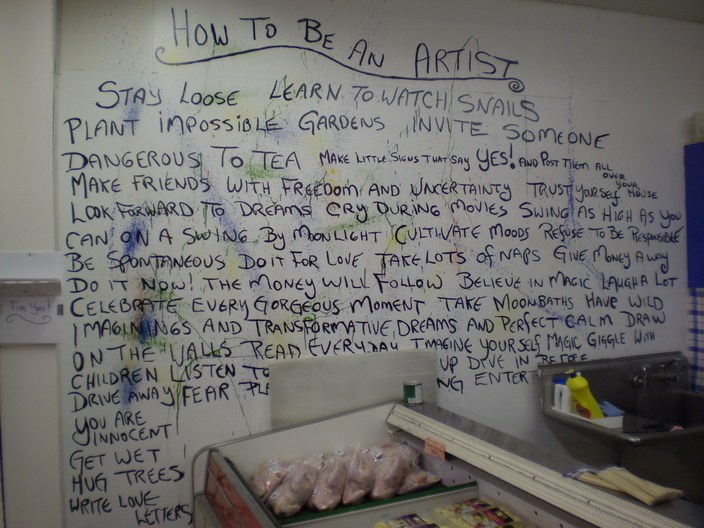 HOW TO BE AN ARTIST
STAY LOOSE LEARN TO WATCH SNAILS
PLANT IMPOSSIBLE GARDENS INVITE SOMEONE
DANGEROUS TO TEA MAKE LITTLE SIGNS THAT SAY YES! AND POST THEM ALL
OVER
YOUR
HOUSE
MAKE FRIENDS WITH FREEDOM AND UNCERTAINTY TRUST YOURSELF
LOOK FORWARD TO DREAMS CRY DURING MOVIES SWING AS HIGH AS YOU
CAN ON A SWING BY MOONLIGHT CULTIVATE MOODS REFUSE TO BE RESPONSIBLE
BE SPONTANEOUS DO IT FOR LOVE TAKE LOTS OF NAPS GIVE MONEY AWAY
DO IT NOW! THE MONEY WILL FOLLOW BELIEVE IN MAGIC LAUGH A LOT
CELEBRATE EVERY GORGEOUS MOMENT TAKE MOONBATHS HAVE WILD
IMAGININGS AND TRANSFORMATIVE DREAMS AND PERFECT CALM DRAW
ON THE WALLS READ EVERYDAY IMAGINE YOURSELF MAGIC GIGGLE WITH
CHILDREN LISTEN TO UP DIVE IN BE FREE
DRIVE AWAY FEAR PL NG ENTERT
YOU ARE
INNOCENT
GET WET
HUG TREES
WRITE LOVE
LETTERS
FOR YOU!